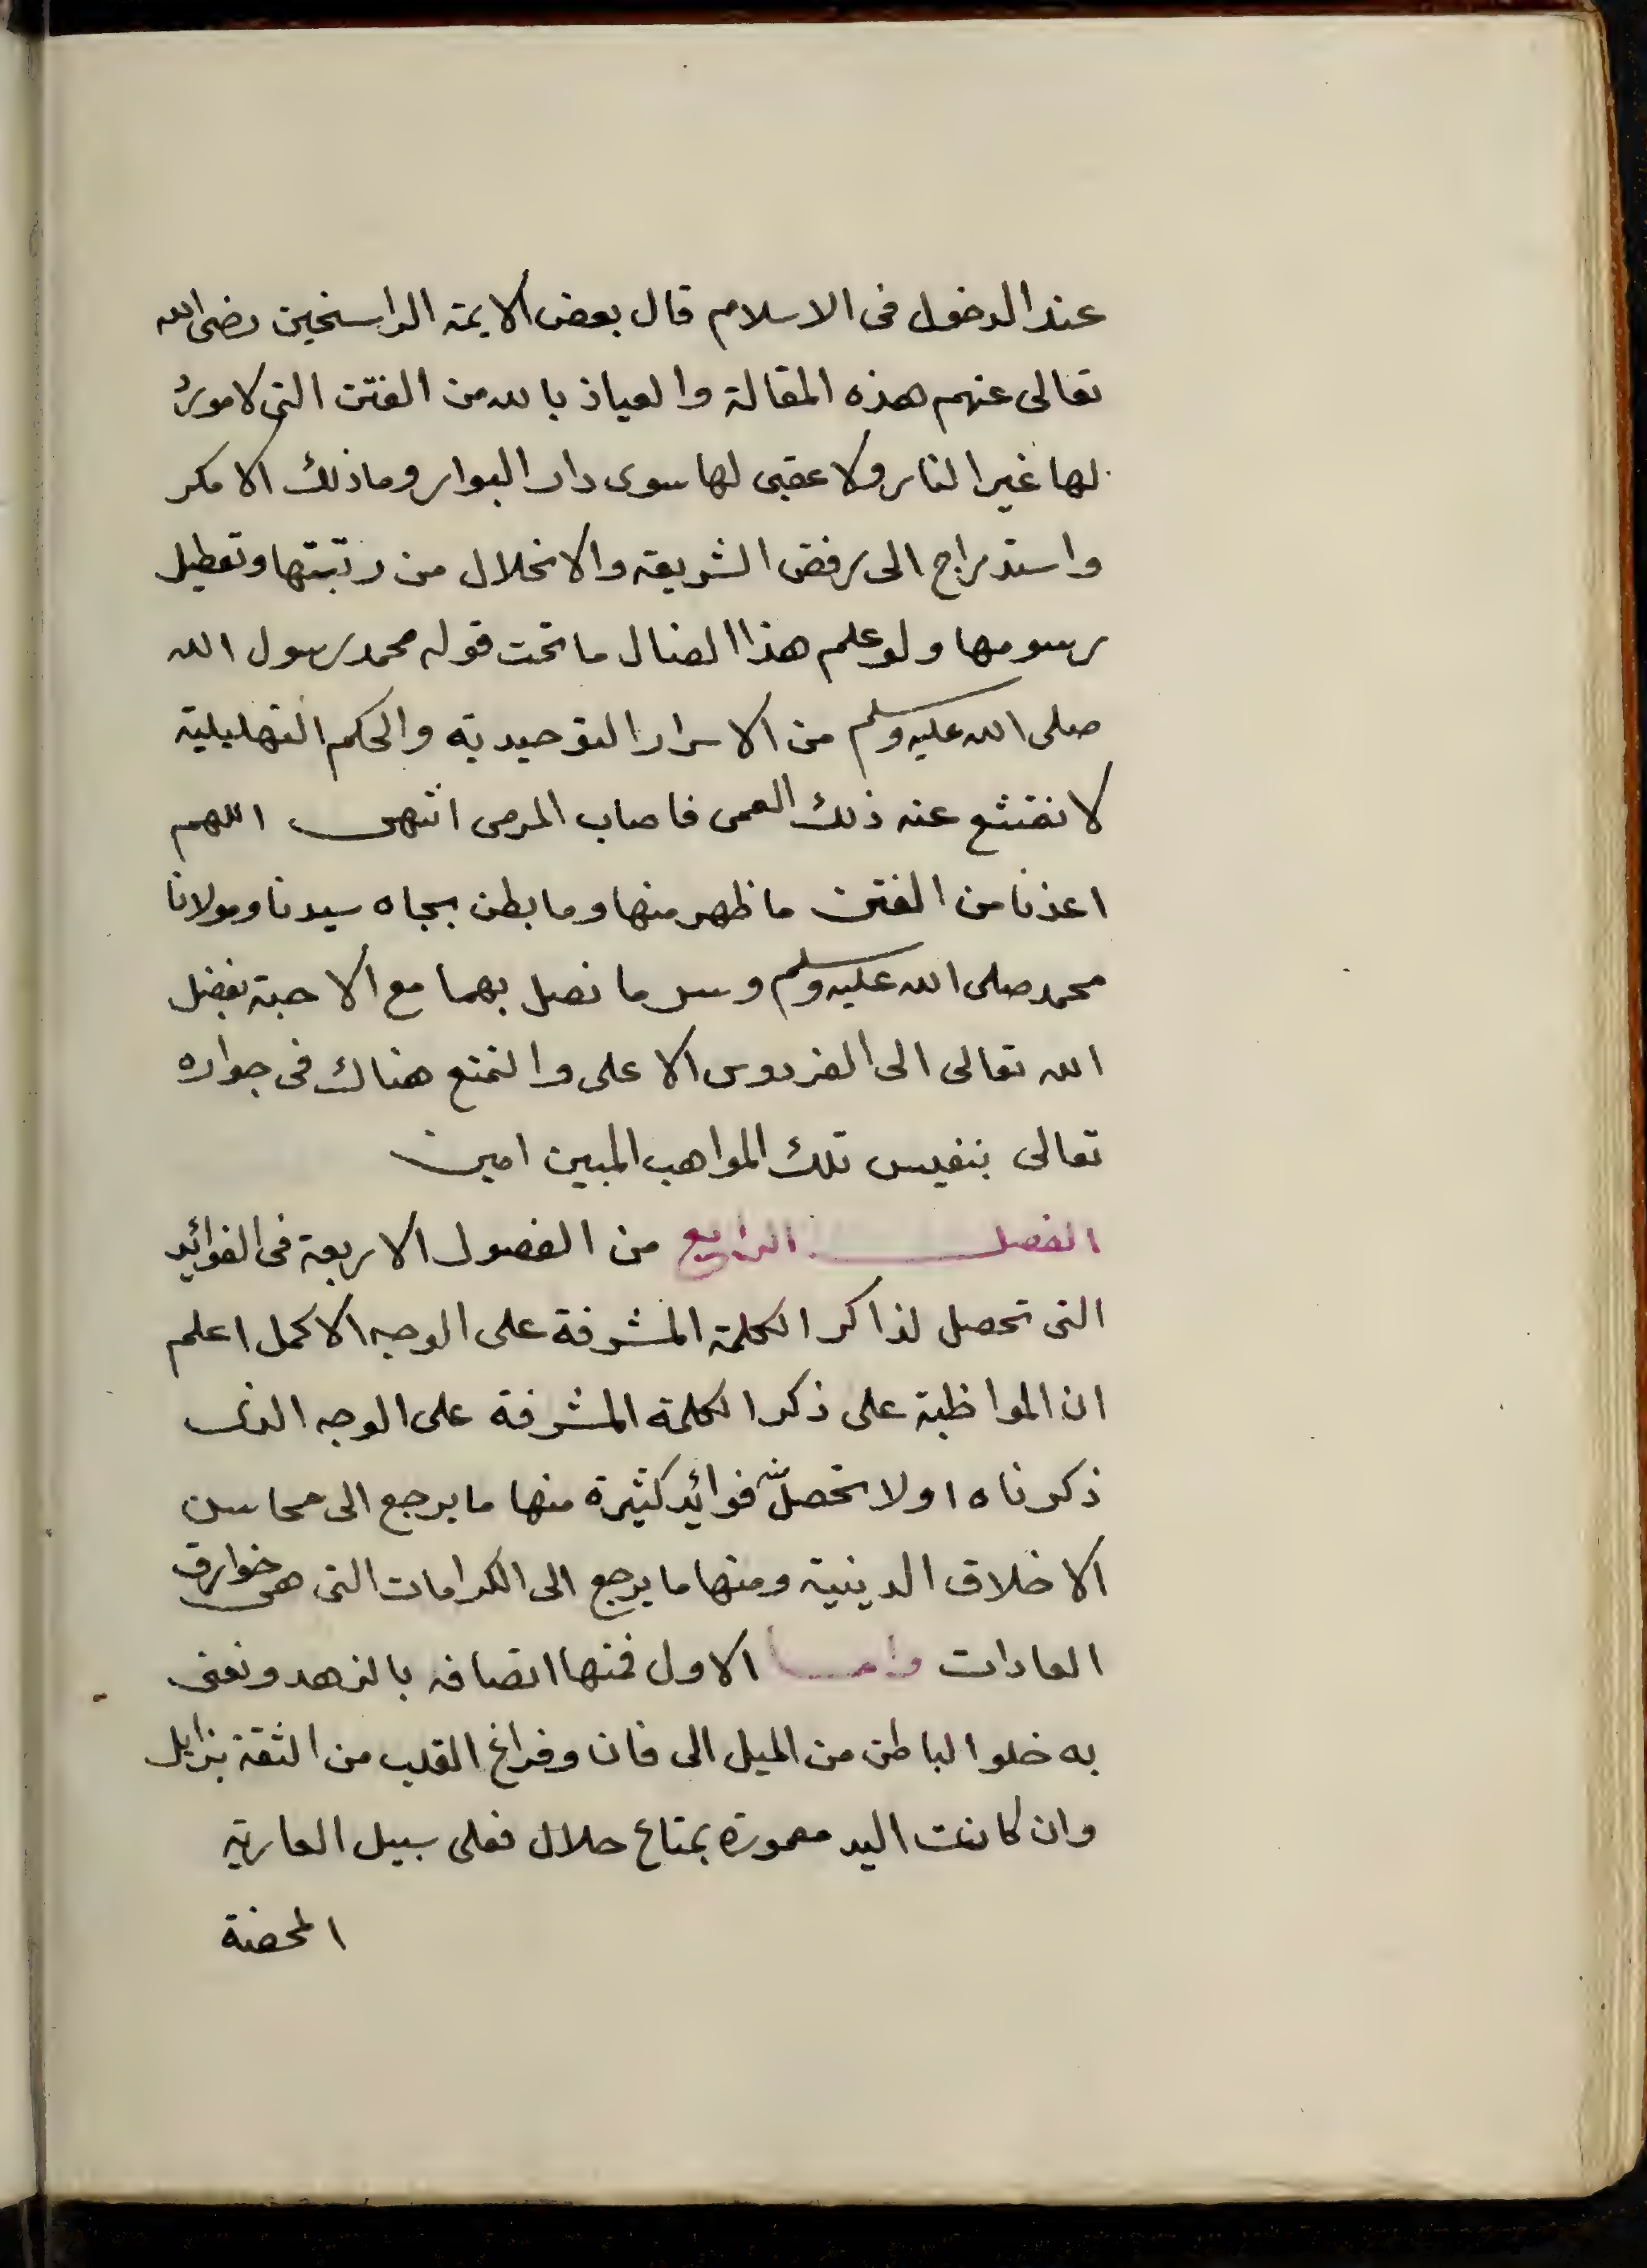 عند الدخول فى الاسلام قال بعض الايمة الراسخين رضى الله
تعالى عنهم هذه المقالة والعياذ بالله من الفتن التى لا مورد
لها غير النار ولا عقبى لها سوى دار البوار وما ذلك الا مكر
واستدراج الى رفض الشريعة والانحلال من رتبتها وتعطيل
رسومها ولو علم هذا الضال ما تحت قوله محمد رسول الله
صلى الله عليه وسلم من الاسرار التوحيدية والحكم التهليلية
لانقشع عنه ذلك العمى فاصاب المرمى انتهى اللهم
اعذنا من الفتن ما ظهر منها وما بطن بجاه سيدنا ومولانا
محمد صلى الله عليه وسلم ما نصل بهما مع الاحبة بفضل
الله تعالى الى الفردوس الاعلى والتمتع هناك فى جواره
تعالى بنفيس تلك المواهب المبين امين
الفصل الرابع من الفصول الاربعة فى الفوائد
التى تحصل لذاكر الكلمة المشرفة على الوجه الاكمل اعلم
ان المواظبة على ذكر الكلمة المشرفة على الوجه الذى
ذكرناه اولا تحصل منه فوائد كثيرة منها ما يرجع الى محاسن
الاخلاق الدينية ومنها ما يرجع الى الكرامات التى هى خوارق
العادات واما الاول فمنها اتصافه بالزهد ونعنى
به خلو الباطن من الميل الى فان وفراغ القلب من الثقة بزايل
وان كانت اليد معمورة بمتاع حلال فعلى سبيل العارية
المحضة